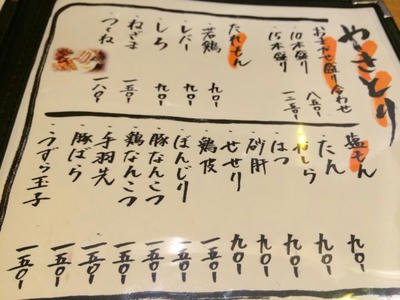 やきとり
おまかせ盛り合わせ
10本盛り 八五〇
15本盛り 一二五〇
たれもん
若鶏 九〇
レバー 九〇
しろ 九〇
ねぎま 一五〇
つくね 一八〇
塩もん
たん 九〇
かしら 九〇
はつ 九〇
砂肝 九〇
せせり 九〇
鶏皮 一五〇
ぼんじり 一五〇
豚なんこつ 一五〇
鶏なんこつ 一五〇
手羽先 一五〇
豚ばら 一五〇
うずら玉子 一五〇